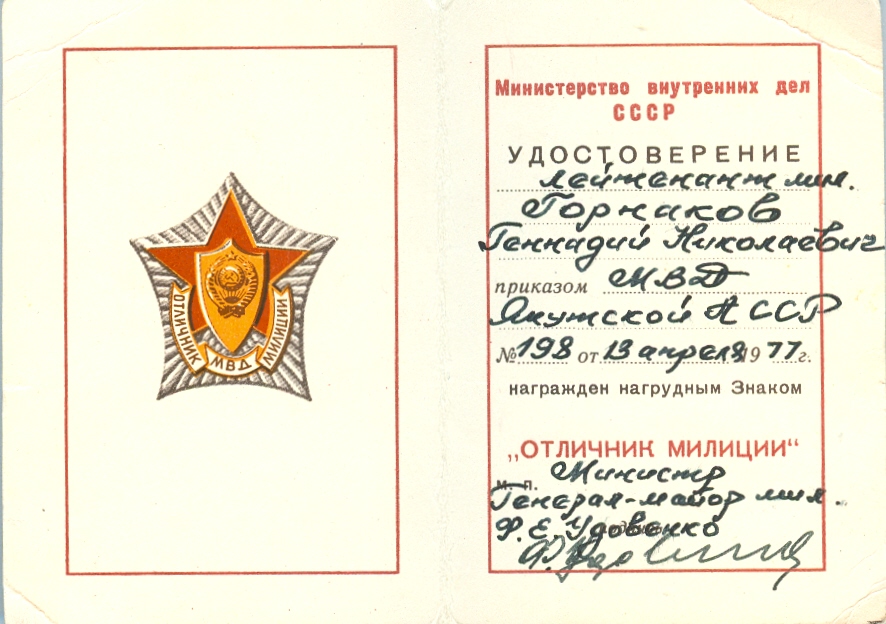 ОТЛИЧНИК
МВД
МИЛИЦИИ
Министерство внутренних дел
СССР
УДОСТОВЕРЕНИЕ
лейтенант мил.
Горнаков
Геннадий Николаевич
приказом МВД
Якутской АССР
№ 198 от 13 апреля 1977 г.
награжден нагрудным Знаком
„ОТЛИЧНИК МИЛИЦИИ“
м. п. Министр
Генерал-майор мил.
Ф. Е. Удовенко